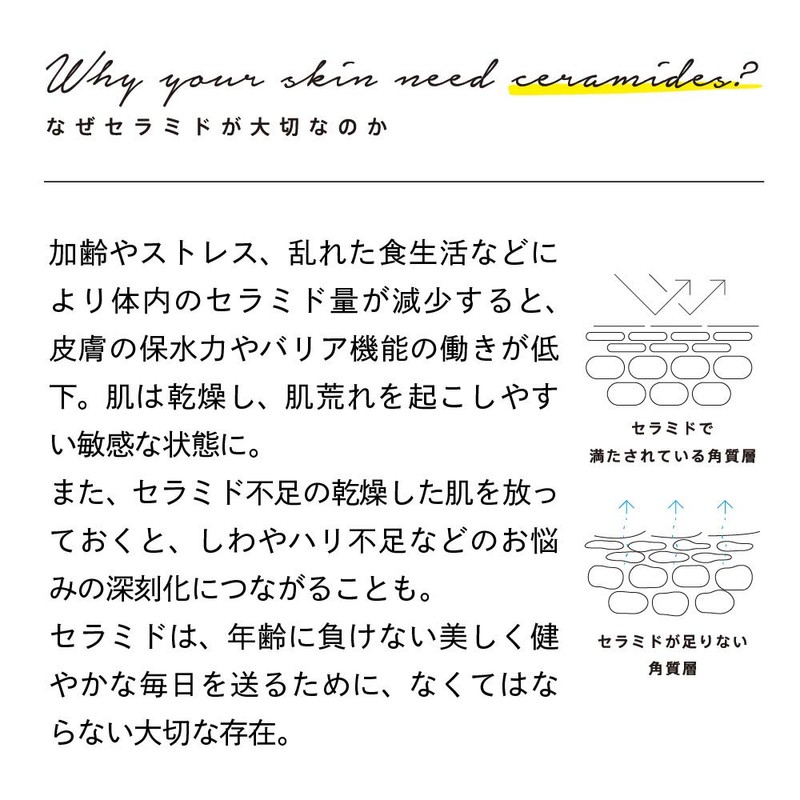 Why your skin need ceramides?
なぜセラミドが大切なのか
加齢やストレス、乱れた食生活などに
より体内のセラミド量が減少すると、
皮膚の保水力やバリア機能の働きが低
下。肌は乾燥し、肌荒れを起こしやす
い敏感な状態に。
また、セラミド不足の乾燥した肌を放っ
ておくと、しわやハリ不足などのお悩
みの深刻化につながることも。
セラミドは、年齢に負けない美しく健
やかな毎日を送るために、なくてはな
らない大切な存在。
セラミドで
満たされている角質層
セラミドが足りない
角質層